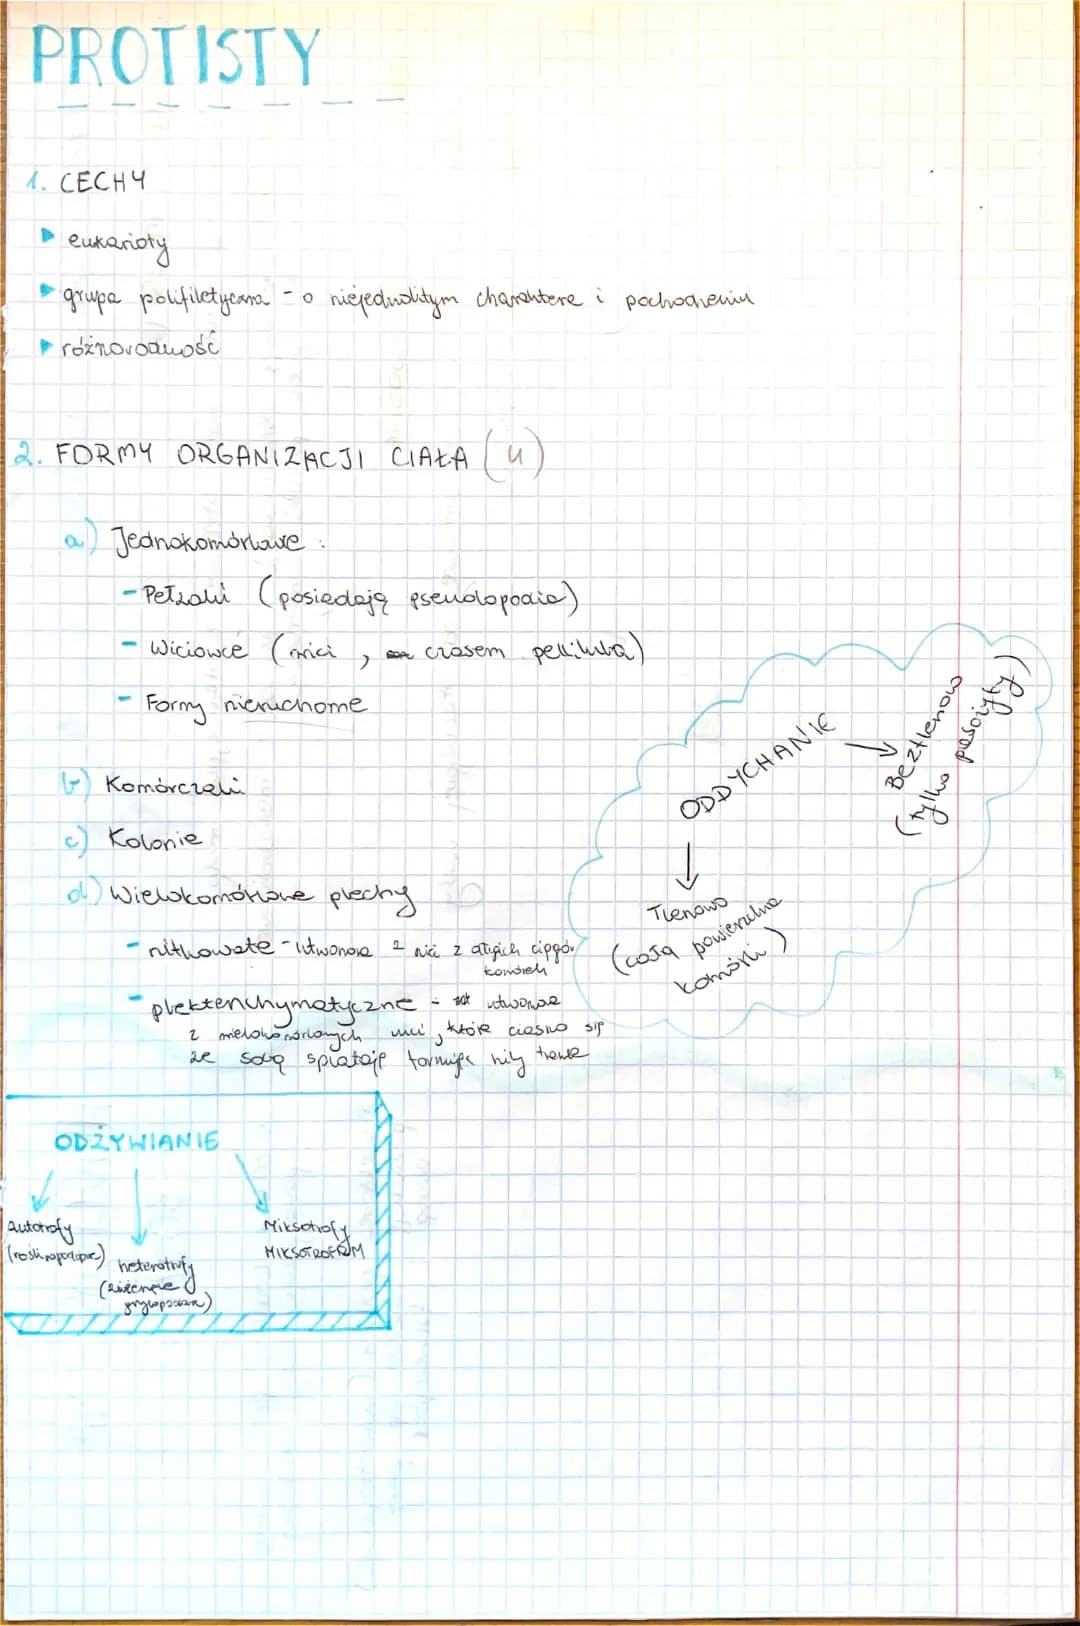 PROTISTY
1. CECHY
eukarioty
grupa polifiletyczna - o niejednolitym charakterze i pochodzeniu
różnorodność
2. FORMY ORGANIZACJI CIAŁA (4)
a) Jednokomórkowe :
- Pełzaki (posiadają pseudopodia)
- Wiciowce (wici, czasem pellikula)
- Formy nieruchome
b) Komórczaki
c) Kolonie
d) Wielokomórkowe plechy
- nitkowate - utworzona z nici z długich ciągów
komórek
- plektenchymatyczne - utworzone
z wielokomórkowych nici, które ciasno się
ze sobą splatają formując
ODDYCHANIE
Beztlenowo
(tylko pasożyty)
Tlenowo
(całą powierzchnią
komórki)
ODŻYWIANIE
Autotrofy
(roślinopodobne)
heterotrofy
(zwierzęce
grzybopodobne)
Miksotrofy
MIKSOTROFIZM